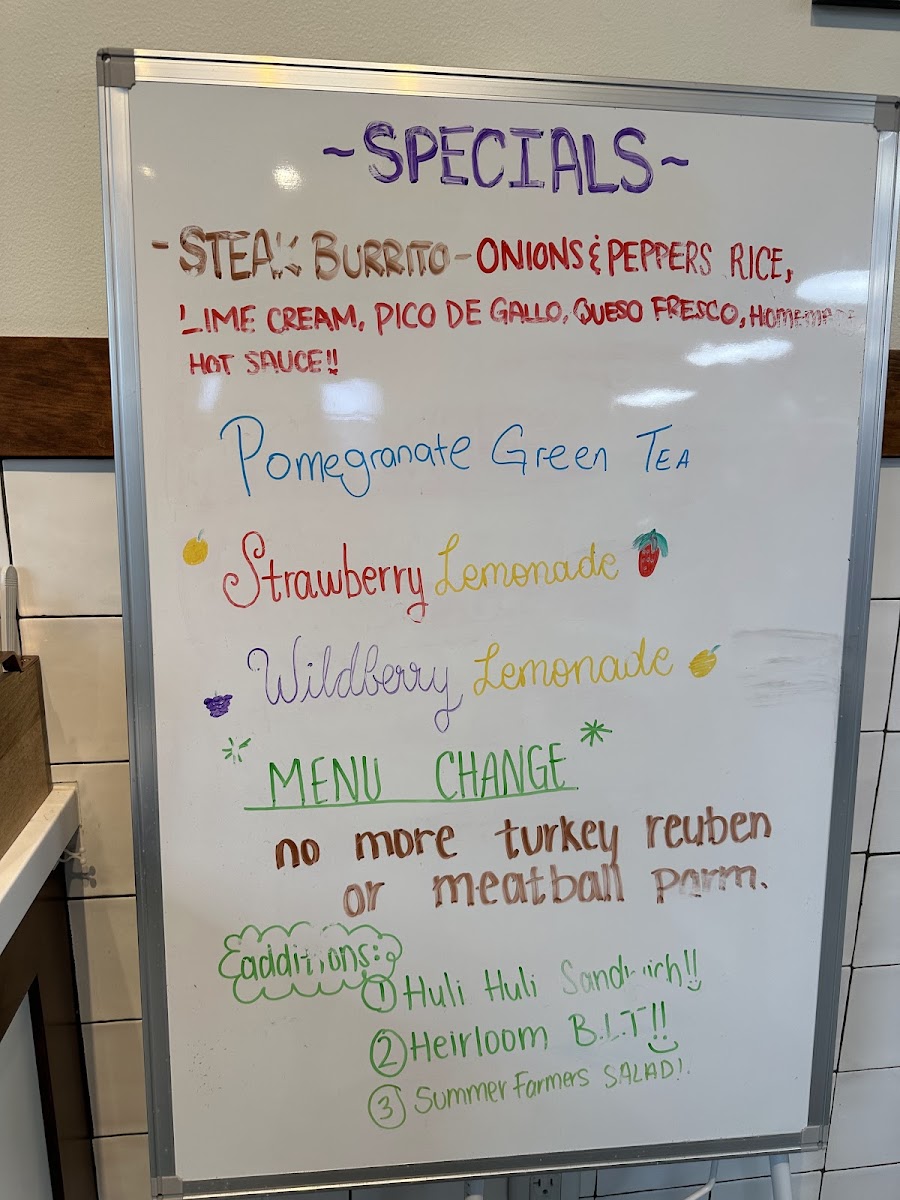 ~SPECIALS~
- STEAK BURRITO - ONIONS & PEPPERS RICE,
LIME CREAM, PICO DE GALLO, QUESO FRESCO, HOMEMADE
HOT SAUCE!!
Pomegranate Green TEA
Strawberry Lemonade
Wildberry Lemonade
* MENU CHANGE *
no more turkey reuben
or meatball parm.
additions:
① Huli Huli Sandwich!!
② Heirloom B.L.T!!
③ Summer Farmers SALAD!.